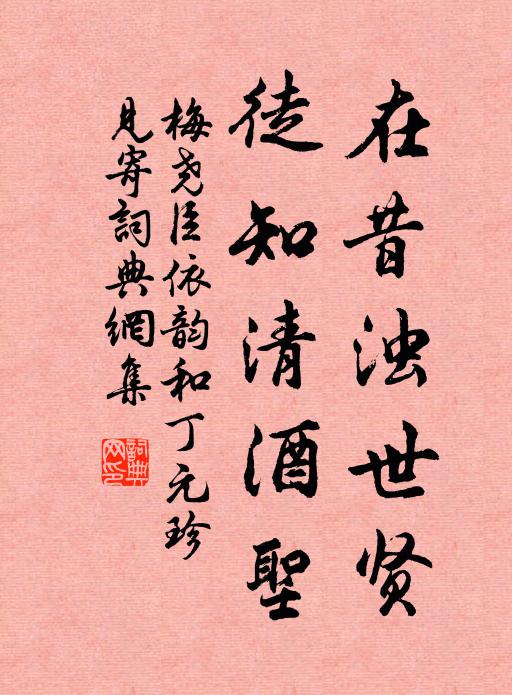 在昔浊世贤
徒知清酒聖
梅尧臣依韵和丁元珍
见寄詞典網集
詞典网印